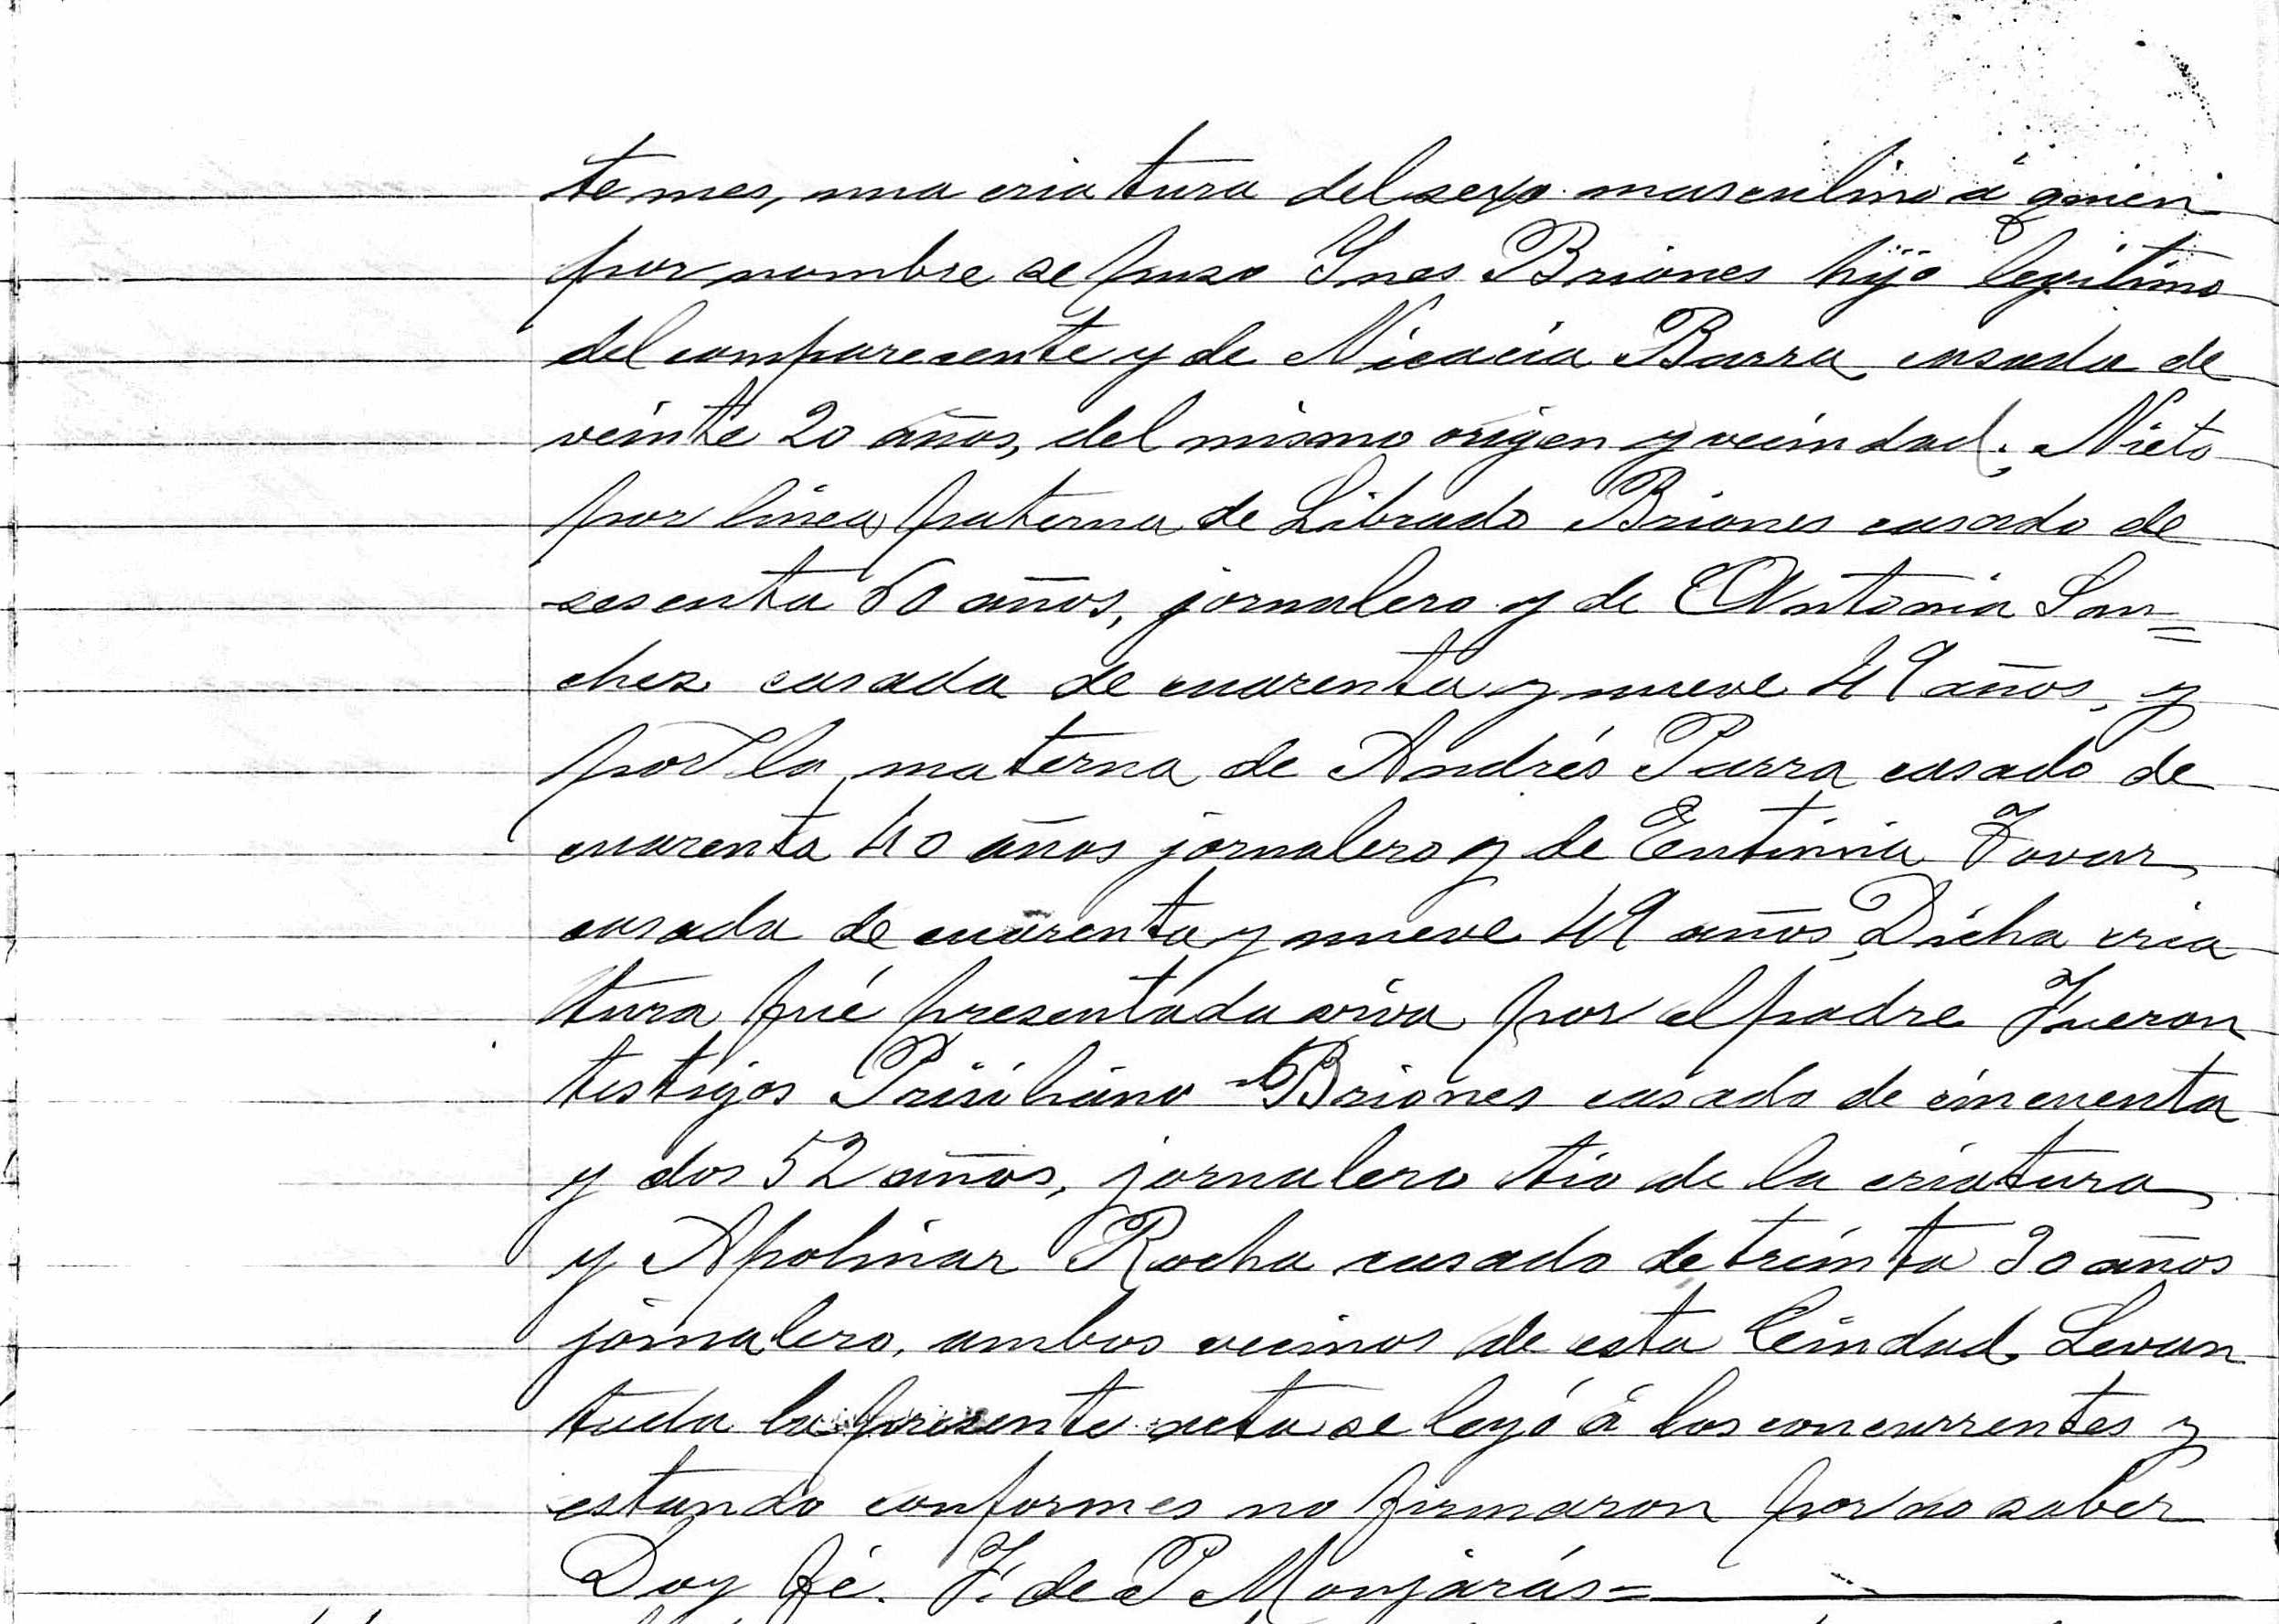 te mes, una criatura del sexo masculino á quien
por nombre se puso Ynes Briones hijo legitimo
del compareciente y de Nicacia Barra casada de
veinte 20 años, del mismo origen y vecindad; Nieto
por linea paterna de Librado Briones casado de
sesenta 60 años, jornalero y de Antonia San=
chez casada de cuarenta y nueve 49 años, y
por la materna de Andrés Parra casado de
cuarenta 40 años jornalero y de Entinia Tovar
casada de cuarenta y nueve 49 años, Dicha cria
tura fué presentada viva por el padre Fueron
testigos Prisiliano Briones casado de cincuenta
y dos 52 años, jornalero tio de la criatura
y Apolinar Rocha casado de treinta 30 años
jornalero, ambos vecinos de esta Ciudad. Levan
tada la presente acta se leyó á los concurrentes y
estando conformes no firmaron por no saber
Doy fé. F. de P Monjarás=